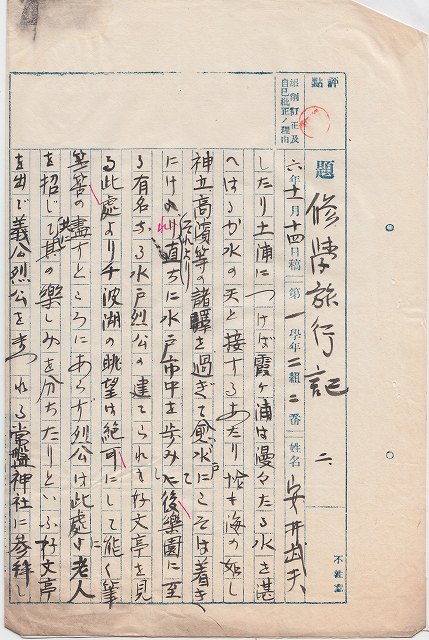 評點
規則訂正及
自己批正ノ理由
題 修學旅行記 二、
六年十一月十四日稿 第一學年二組二番 姓名 安井武夫
したり土浦につけば霞ヶ浦は漫々たる水を湛
へはるか水の天と接するあたり恰も海の如し
神立高濱等の諸驛を過ぎて愈水戸にこそは着き
にけり それより直ちに水戸市中を歩みて後樂園に至
る有名なる水戸烈公の建てられし好文亭を見
る此處より千波湖の眺望は絶佳にして能く筆
の盡すところにあらず烈公は此處に老人
を招じて共に其の樂しみを分ちたりといふ好文亭
を出で義公烈公をまつれる常盤神社に參拜し